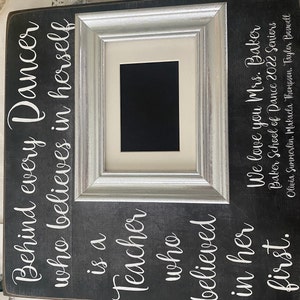 Behind every Dancer
who believes in herself
is a
Teacher
who
believed
in her
first.
We love you Mrs. Baker
Baker School of Dance 2022 Seniors
Olivia Summerlin, Makaela Thompson, Taylor Buswell